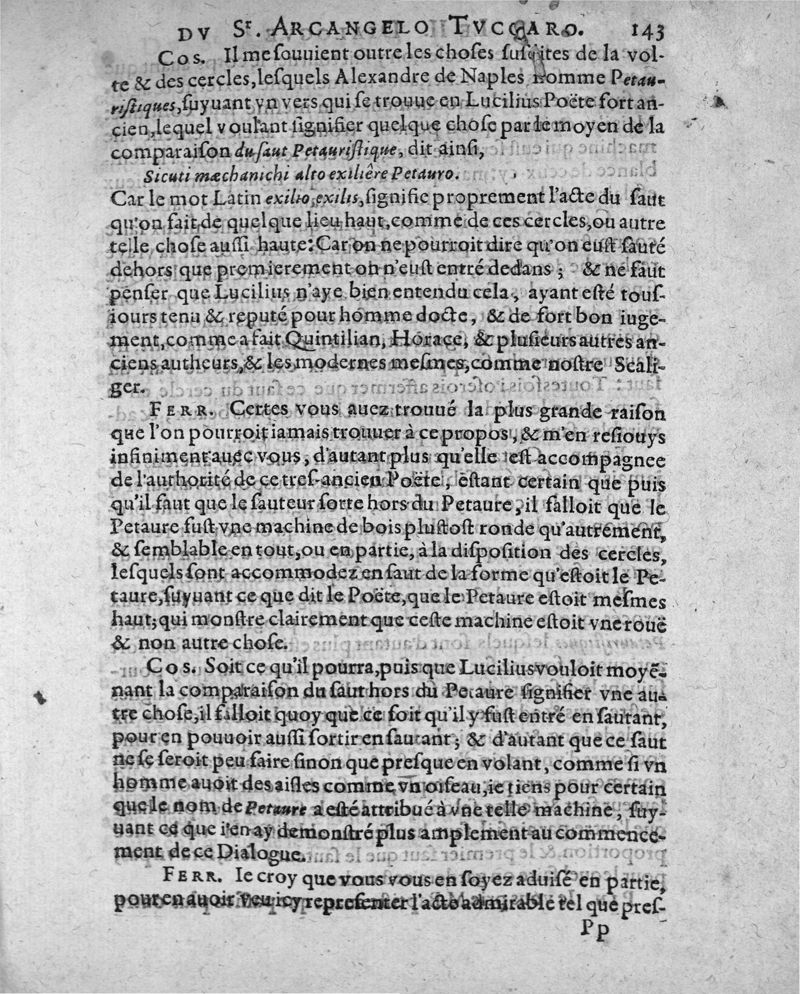 DV Sr. ARCANGELO TVCCARO. 143
COS. Il me souuient outre les choses susdites de la vol-
te & des cercles, lesquels Alexandre de Naples nomme Petau-
ristiques, suyuant vn vers qui se trouue en Lucilius Poëte fort an-
cien, lequel voulant signifier quelque chose par le moyen de la
comparaison du saut Petauristique, dit ainsi,
Sicuti mæchanichi alto exiliêre Petauro.
Car le mot Latin exilio, exilis, signifie proprement l'acte du saut
qu'on fait de quelque lieu haut, comme de ces cercles, ou autre
telle chose aussi haute: Car on ne pourroit dire qu'on eust sauté
dehors que premierement on n'eust entré dedans; & ne faut
penser que Lucilius n'aye bien entendu cela, ayant esté tous-
iours tenu & reputé pour homme docte, & de fort bon iuge-
ment, comme a fait Quintilian, Horace, & plusieurs autres an-
ciens autheurs, & les modernes mesmes, comme nostre Scali-
ger.
FERR. Certes vous auez trouué la plus grande raison
que l'on pourroit iamais trouuer à ce propos, & m'en resiouys
infiniment auec vous, d'autant plus qu'elle est accompagnee
de l'authorité de ce tres-ancien Poëte, estant certain que puis
qu'il faut que le sauteur sorte hors du Petaure, il falloit que le
Petaure fust vne machine de bois plustost ronde qu'autrement,
& semblable en tout, ou en partie, à la disposition des cercles,
lesquels sont accommodez en saut de la forme qu'estoit le Pe-
taure, suyuant ce que dit le Poëte, que le Petaure estoit mesmes
haut; qui monstre clairement que ceste machine estoit vne rouë
& non autre chose.
COS. Soit ce qu'il pourra, puis que Lucilius vouloit moyē-
nant la comparaison du saut hors du Petaure signifier vne au-
tre chose, il falloit quoy que ce soit qu'il y fust entré en sautant,
pour en pouuoir aussi sortir en sautant; & d'autant que ce saut
ne se seroit peu faire sinon que presque en volant, comme si vn
homme auoit des aisles comme vn oiseau, ie tiens pour certain
que le nom de Petaure a esté attribué à vne telle machine, suy-
uant ce que i'en ay demonstré plus amplement au commence-
ment de ce Dialogue.
FERR. Ie croy que vous vous en soyez aduisé en partie,
pour en auoir veu icy representer l'acte admirable tel que pres-
Pp